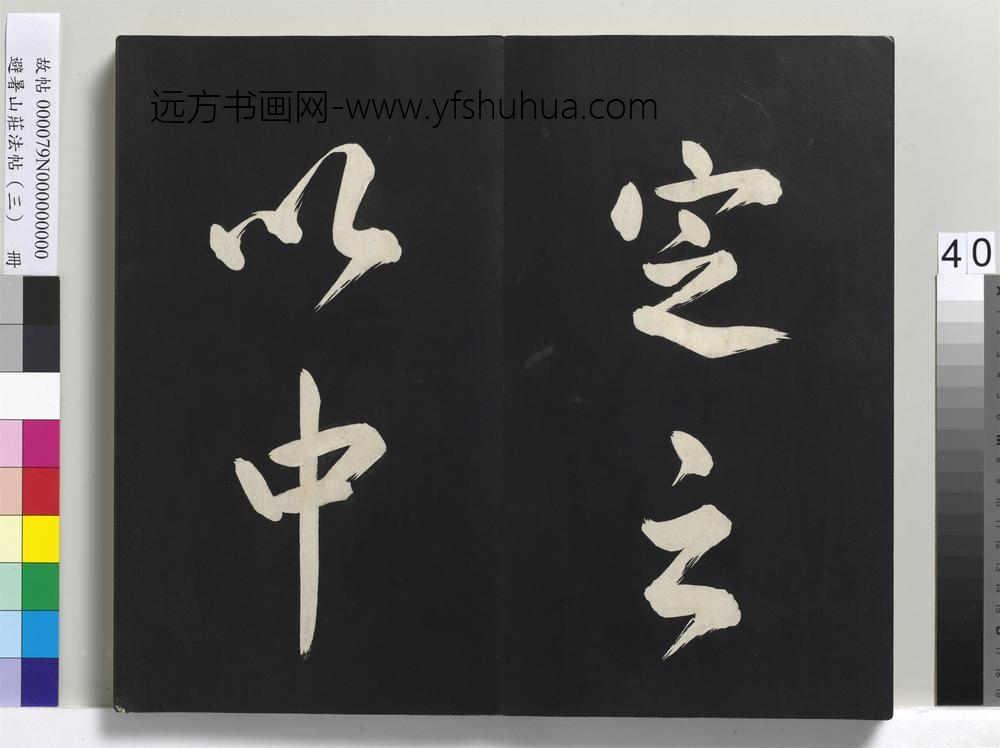 远方书画网-www.yfshuhua.com
定之
以中
故帖 000079N000000000
避暑山莊法帖（三） 冊
40